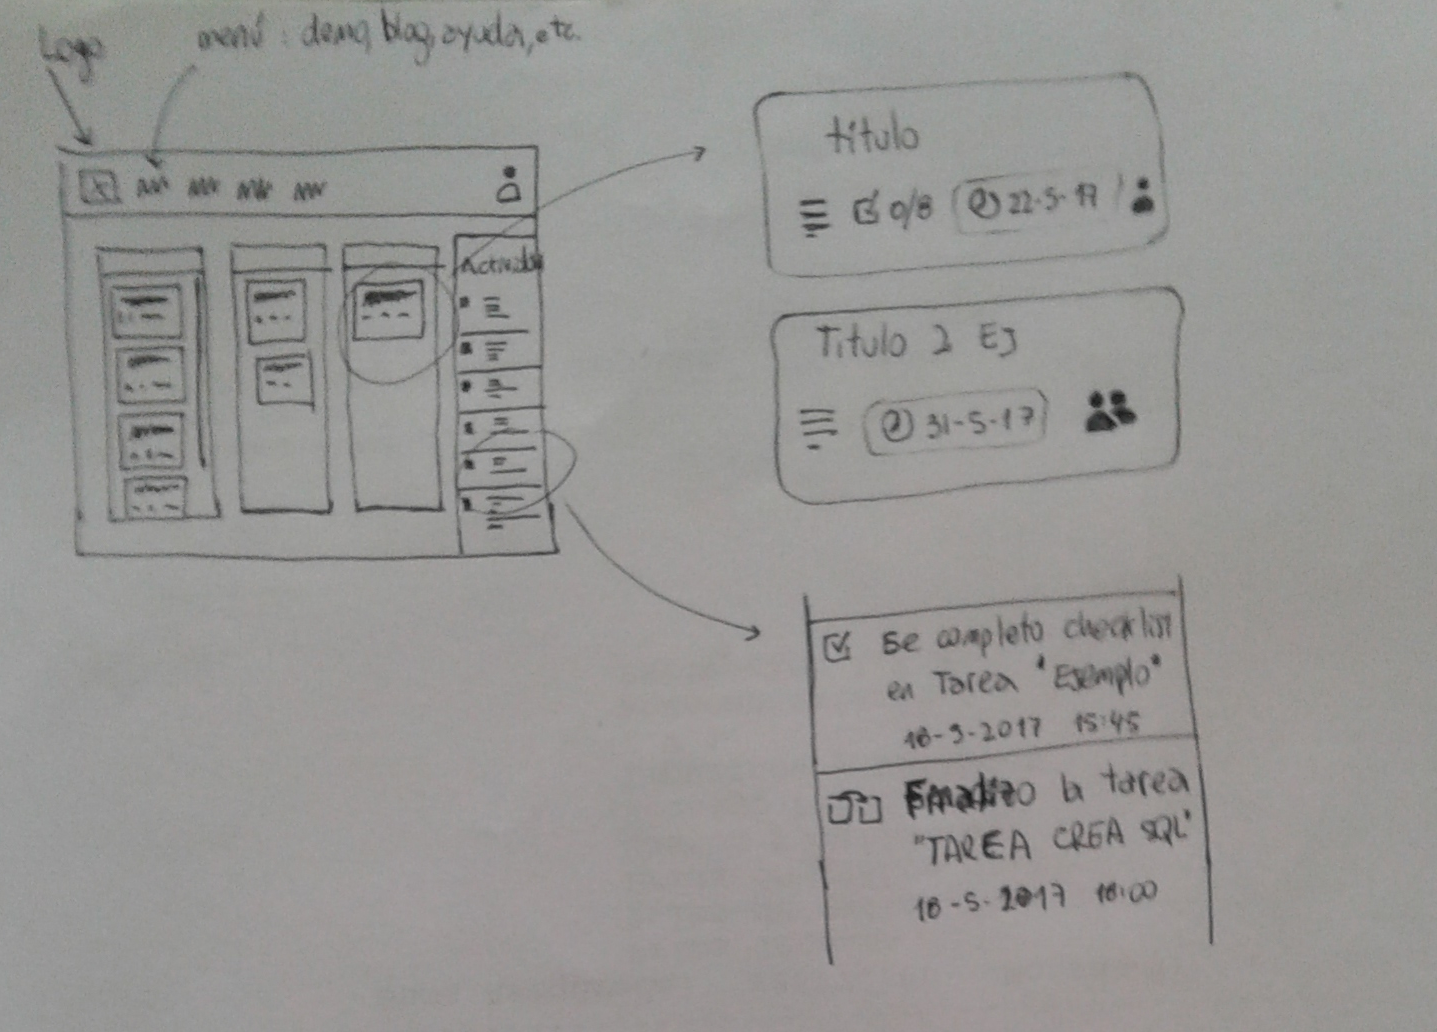 Logo
menú: demo, blog, ayuda, etc.
título
0/8 22-5-17
Titulo 2 EJ
31-5-17
se completo checklist
en Tarea "Ejemplo"
15:45
la tarea
"TAREA CREA SQL"
18-5-2017 18:00